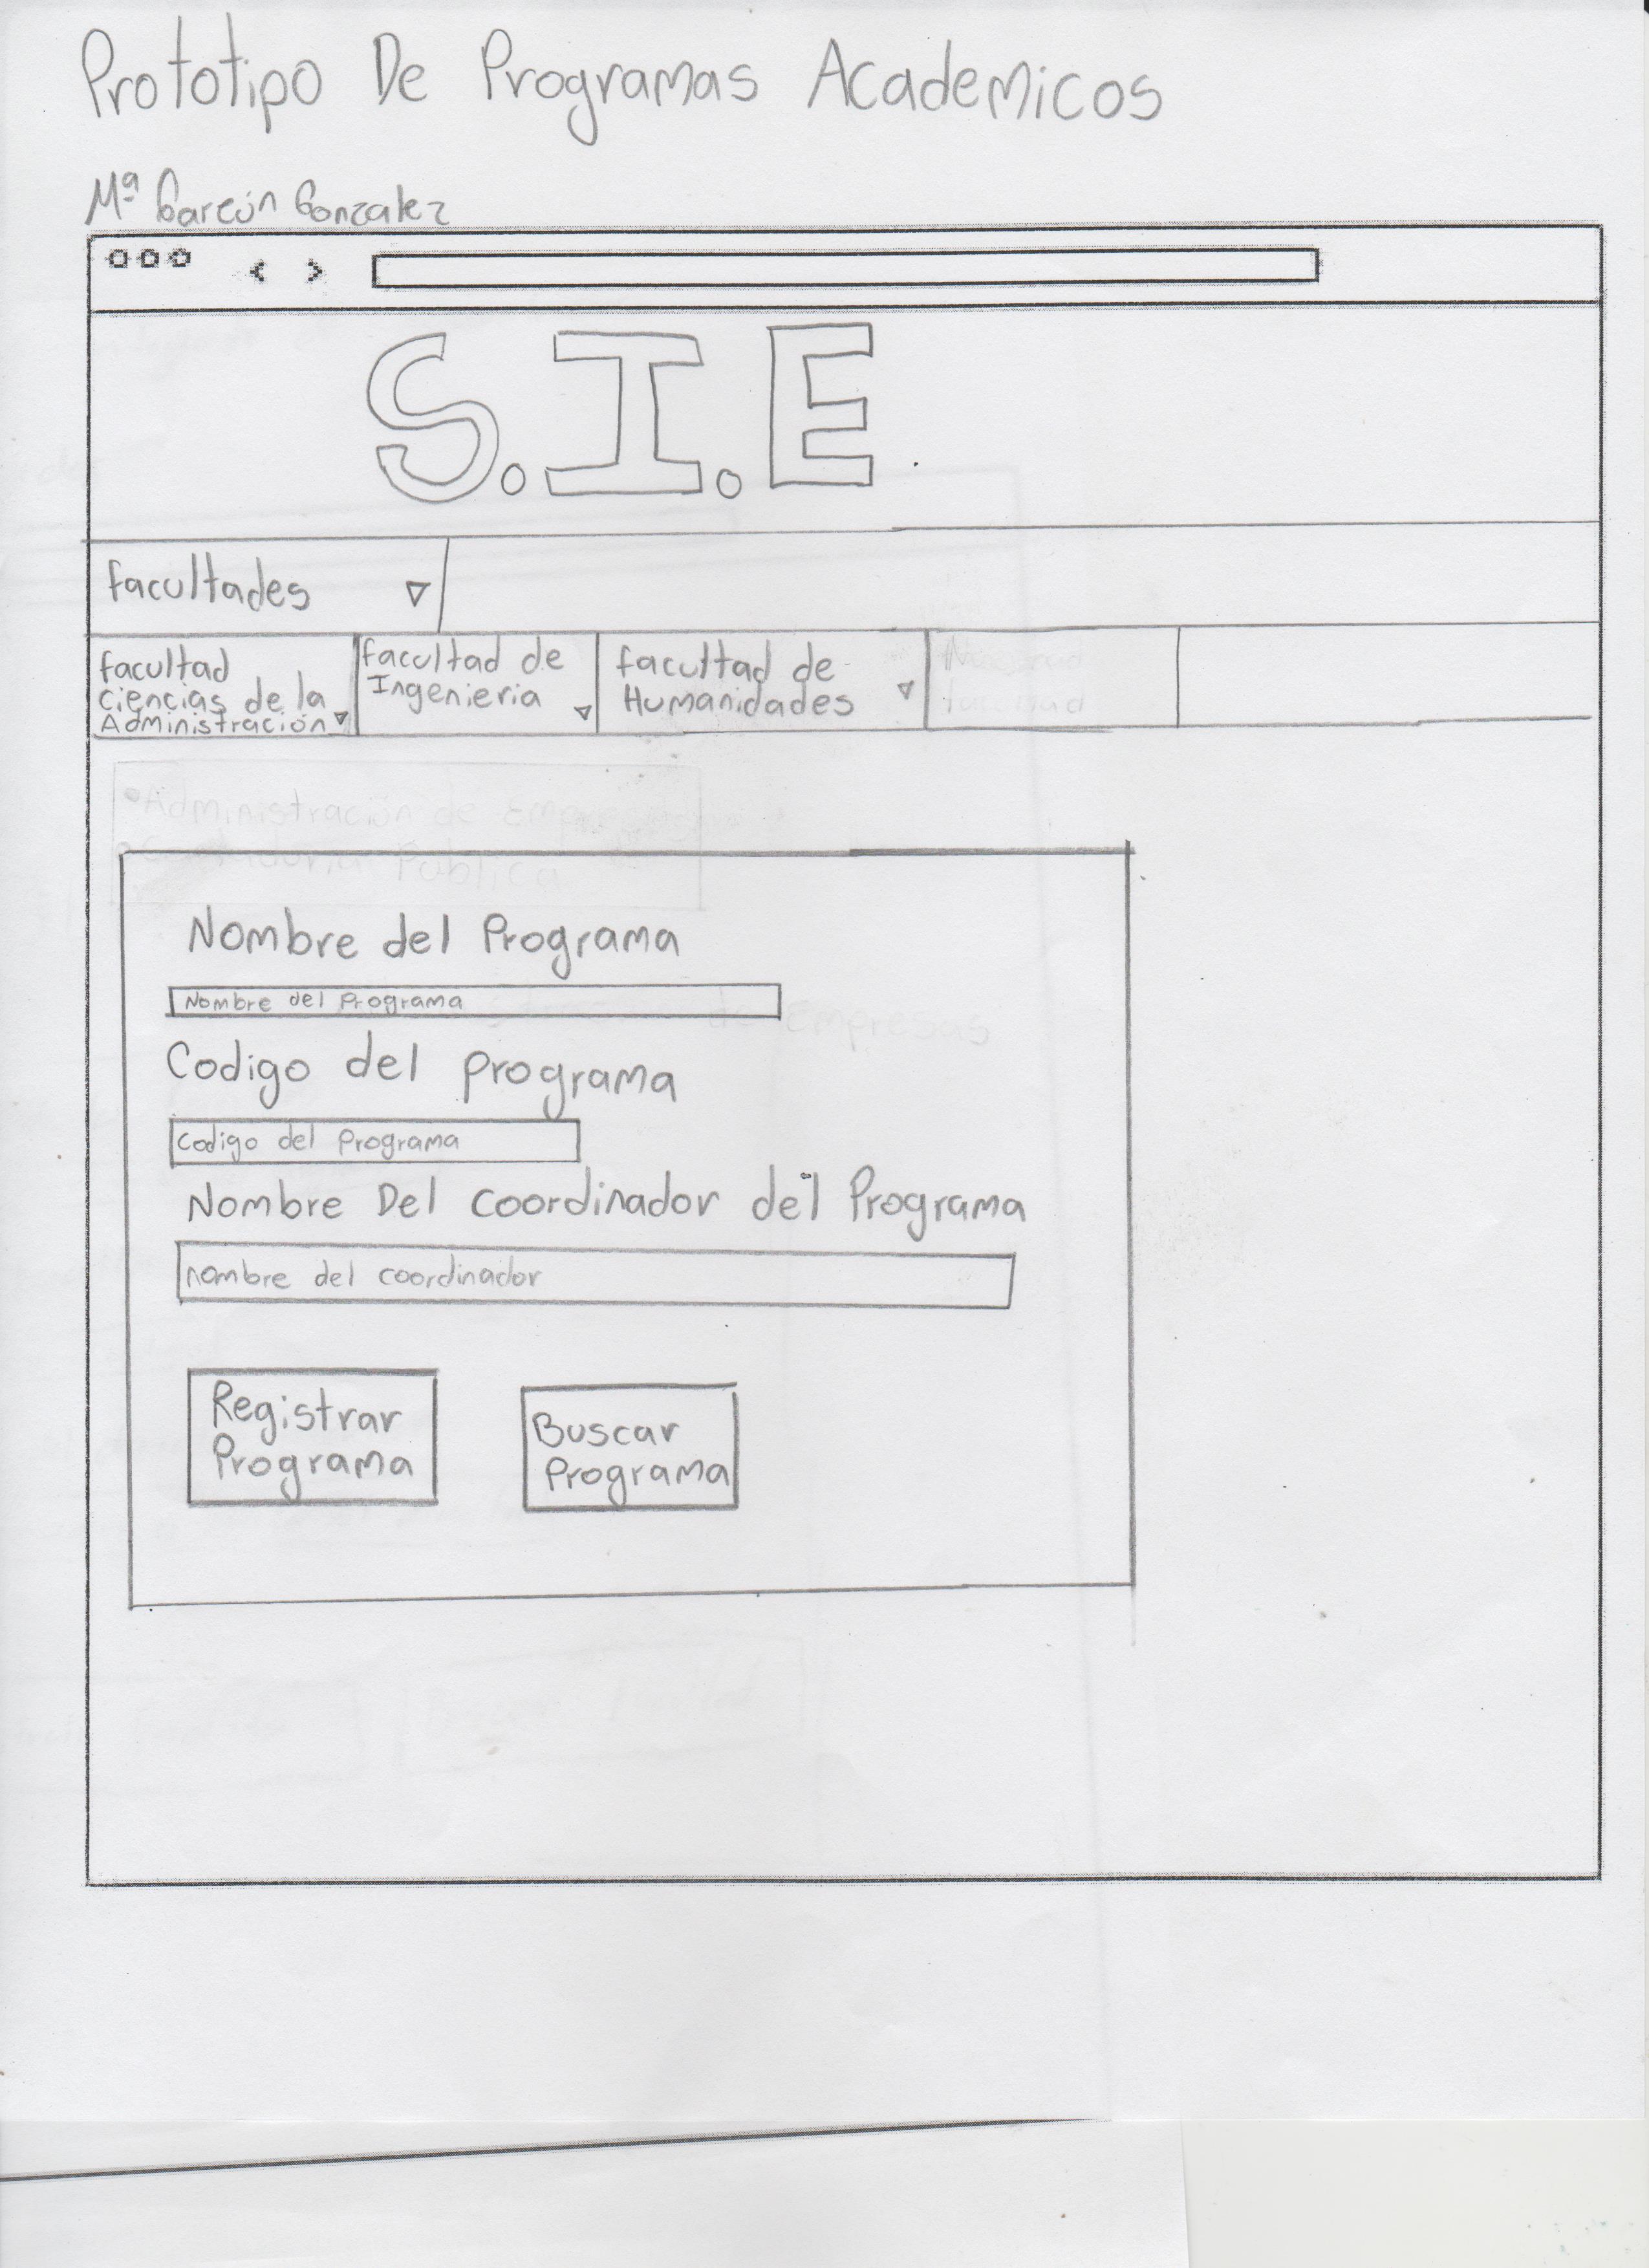 Prototipo De Programas Academicos
Mª Garcón Gonzalez
S.I.E
facultades
facultad
ciencias de la
Administración
facultad de
Ingenieria
facultad de
Humanidades
facultad
•Administración de Empresas
Pública
Nombre del Programa
Nombre del Programa
de Empresas
Codigo del programa
Codigo del Programa
Nombre Del coordinador del Programa
nombre del coordinador
Registrar
Programa
Buscar
Programa